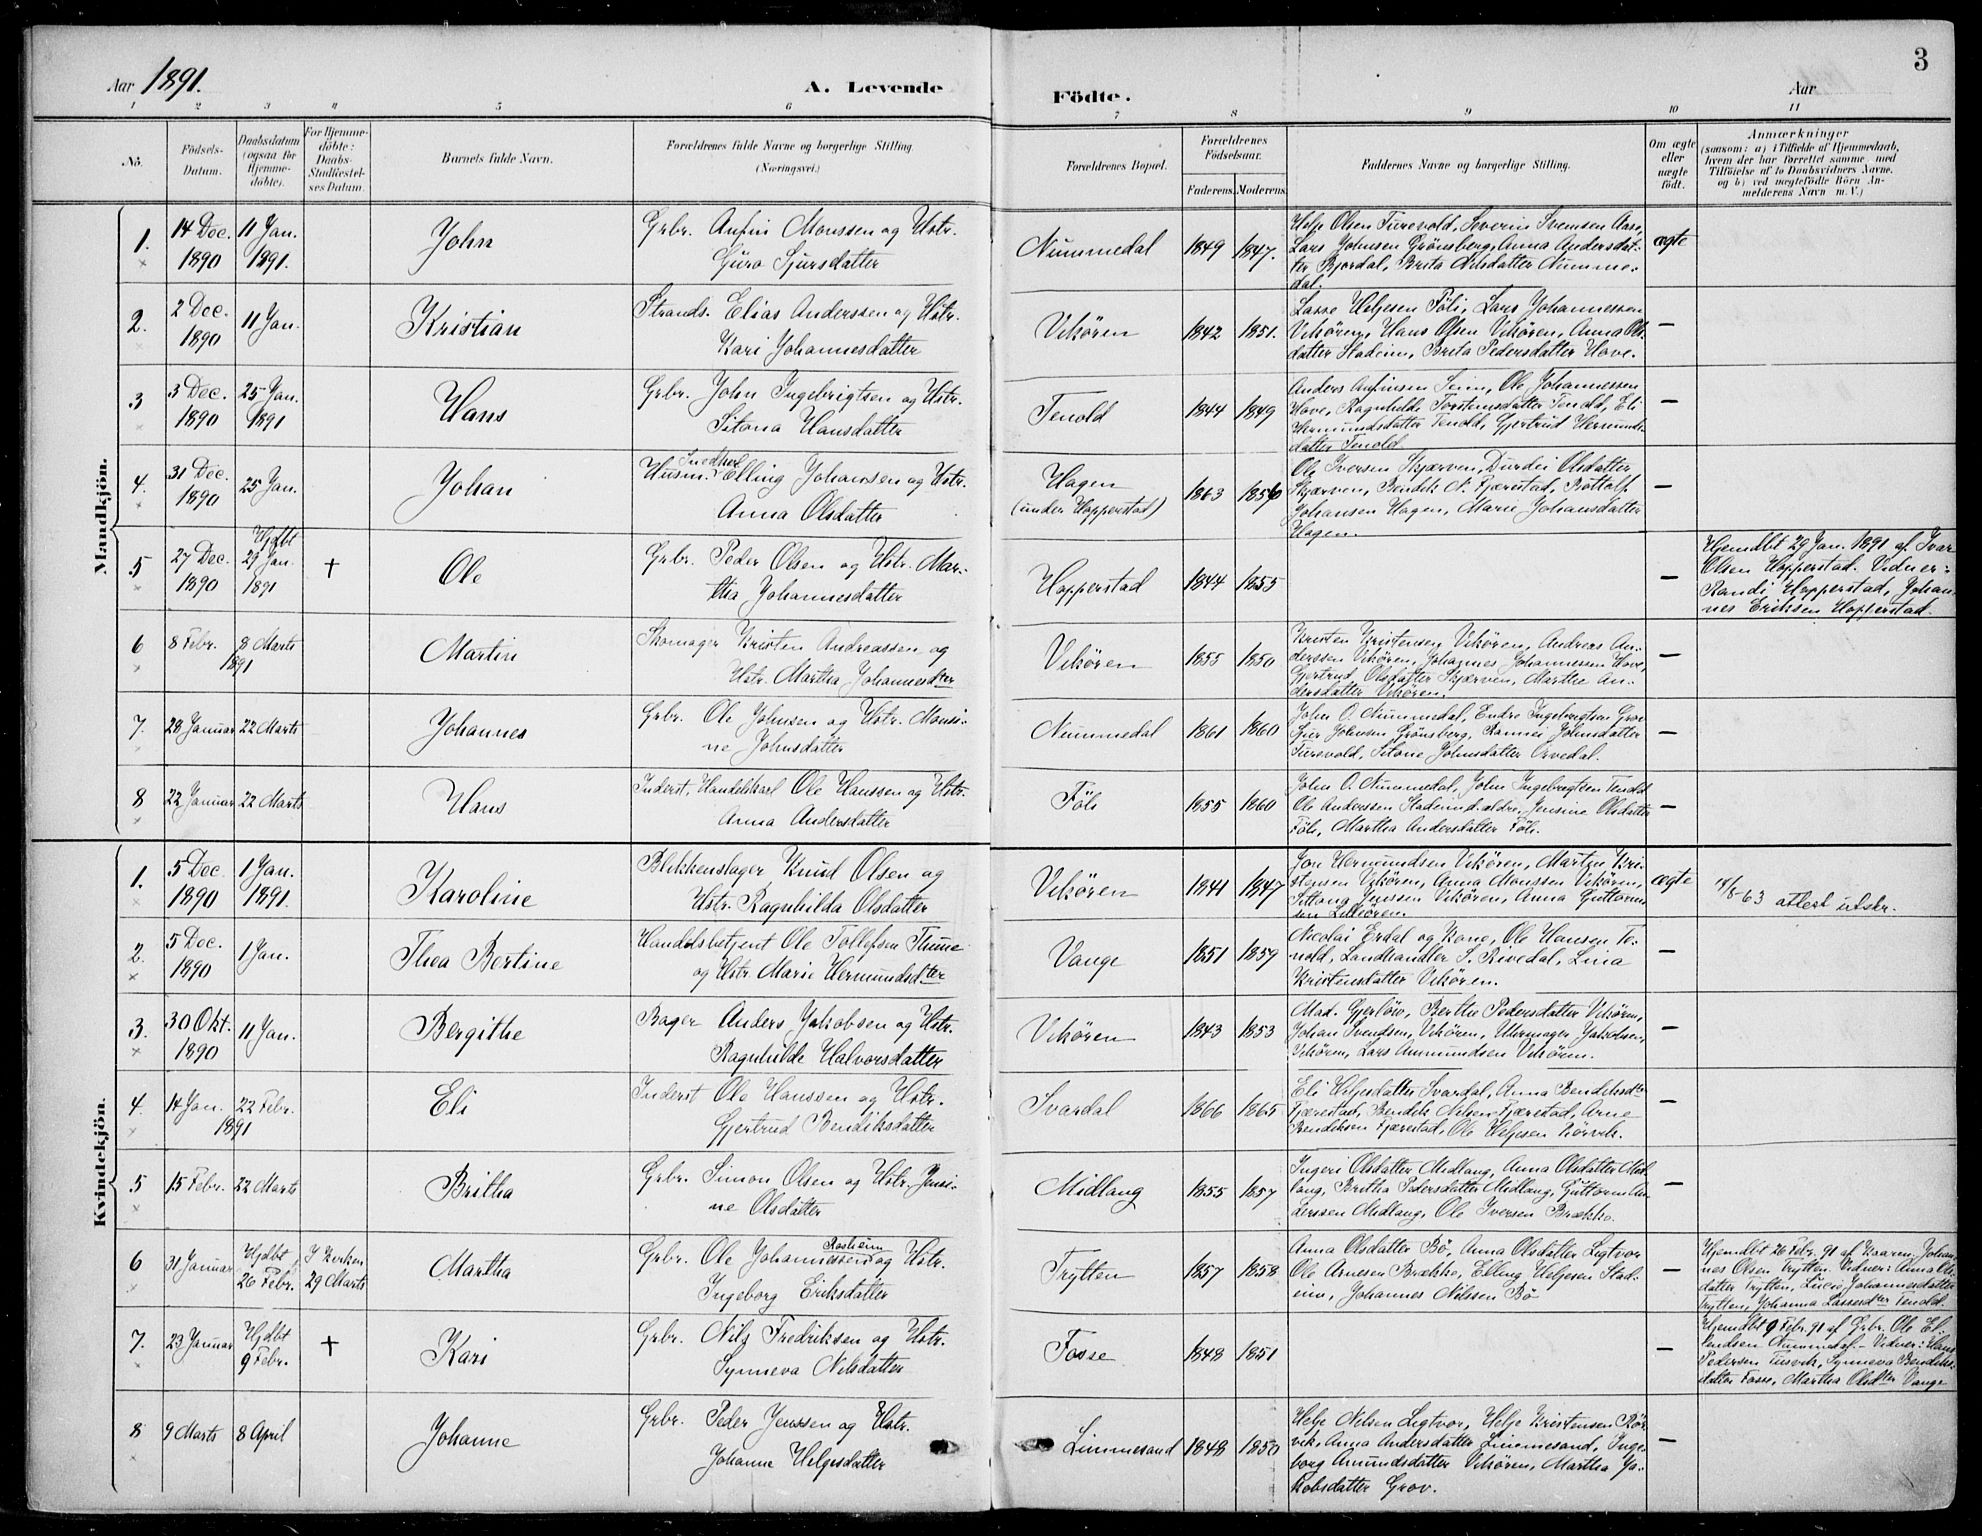 Aar 1891.
A. Levende
Födte.
Aar
3
1 2 3 4 5 6 7 8 9 10 11
No.
Födsels-
Datum.
Daabsdatum
(ogsaa for
Hjemme-
döbte).
For Hjemme-
döbte:
Daabs-
Stadfæstel-
ses Datum.
Barnets fulde Navn.
Forældrenes fulde Navne og borgerlige Stilling
(Næringsvei.)
Forældrenes Bopæl.
Forældrenes
Födselsaar.
Faderens. Moderens.
Faddernes Navne og borgerlige Stilling.
Om ægte
eller
uægte
födt.
Anmærkninger
(saasom: a) i Tilfælde af Hjemmedaab,
hvem der har forrettet samme, med
Tilföielse af to Daabsvidners Navne,
og b) ved uægtefödte Börn An-
melderens Navn m. V.)
Mandkjön.
1.
14 Dec.
1890
11 Jan.
1891.
John
Grbr. Anfin Monssen og Hstr.
Guro Sjursdatter
Nummedal
1849
1847.
Helje Olsen Turevold, Severin Svensen Aase,
Lars Johnsen Grönsberg, Anna Andersdat-
ter Bjordal, Brita Nilsdatter Numme-
dal.
ægte
2.
2 Dec.
1890
11 Jan.
Kristian
Strands. Elias Anderssen og Hstr.
Kari Johannesdatter
Vikören
1842
1851.
Lasse Heljesen Föli, Lars Johannessen
Vikören, Hans Olsen Vikören, Anna Ols-
datter Stadeim, Brita Pedersdatter Hove.
—
3
3 Dec.
1890
25 Jan.
1891
Hans
Grbr. John Ingebrigtsen og Hstr.
Sitona Hansdatter
Tenold
1844
1849
Anders Anfinsen Seim, Ole Johannessen
Hove, Ragnhilde Torsteinsdatter Tenold, Eli
Hermundsdatter Tenold, Gjertrud Hermunds-
datter Tenold
—
4.
31 Dec.
1890
25 Jan.
Johan
Husm. Elling Johanssen og Hstr.
Anna Olsdatter
Hagen
(under Hopperstad)
1863
Ole Iversen Skjærven, Durdei Olsdatter
Skjærven, Bendik N. Fjærestad, Bottolf
Johansen Hagen, Marie Johansdatter
Hagen.
—
5
27 Dec.
1890
Hjdbt
29 Jan.
1891
+
Ole
Grbr. Peder Olsen og Hstr. Mar-
tha Johannesdatter
Hopperstad
1844
1855
—
Hjemdbt 29 Jan. 1891 af Ivar
Olsen Hopperstad. Vidner:
Randi Hopperstad, Johan-
nes Eriksen Hopperstad.
6
8 Febr.
8 Marts
1891
Martin
Skomager Kristen Andreassen og
Hstr. Martha Johannesdter
Vikören
1855
1850
Kristen Kristensen Vikören, Andreas An-
derssen Vikören, Johannes Johannessen Hove,
Gjertrud Olsdatter Skjærven, Marthe An-
dersdatter Vikören.
—
7.
28 Januar
22 Marts
Johannes
Grbr. Ole Johnsen og Hstr. Monsi-
ne Johnsdatter
Nummedal
1861
1860
John O. Nummedal, Endre Ingebrigtsen Grov
Sjur Johnsen Grönsberg, Johnsdatter
Turevold, Sitone Johnsdatter Orvedal.
—
8
22 Januar
22 Marts
Hans
Inderst, Handelskarl Ole Hanssen og Hstr.
Anna Andersdatter
Föli
1855
1860
John O. Nummedal, John Ingebrigtsen Tenold
Ole Anderssen Stadeim d. ældre, Jensine Olsdatter
Föli, Martha Andersdatter Föli.
—
Kvindekjön.
1.
5 Dec.
1890
1 Jan.
1891.
Karoline
Blikkenslager Knud Olsen og
Hstr. Ragnhilda Olsdatter
Vikören
1841
1847
Jon Hermundsen Vikören, Martin Kri-
stensen Vikören, Anna Monssen Vikören,
Sittona Jenssen Vikören, Anna Guttorm-
sen Vikören.
ægte
63 attest utskr.
2.
5 Dec.
1890
1 Jan.
Thea Bertine
Handelsbetjent Ole Tollefsen Thune
og Hstr. Marie Hermundsdter
Vange
1851
1859
Nicolai Erdal og Kone, Ole Hansen Te-
nold, Landhandler S. Rivedal, Lina
Kristensdatter Vikören.
—
3.
30 Okt.
1890
11 Jan.
Bergithe
Bager Anders Jakobsen og Hstr.
Ragnhilde Halvorsdatter
Vikören
1843
1853
Mad. Gjerlöw, Berthe Pedersdatter Vikören,
Johan Svendsen, Vikören, Uhrmager Jakobsen,
Vikören, Lars Ammundsen Vikören.
—
4.
14 Jan.
22 Febr.
1891
Eli
Inderst Ole Hanssen og Hstr.
Gjertrud Bendiksdatter
Svardal
1866
1865
Eli Heljesdatter Svardal, Anna Bendiksdtr
Fjærestad, Bendik Nilsen Fjærestad, Arne
Bendiksen Fjærestad, Ole Heljesen Rörvik.
—
5
15 Febr.
22 Marts
Britha
Grbr. Simon Olsen og Hstr. Jensi-
ne Olsdatter
Midlang
1855
1857
Ingeri Olsdatter Midlang, Anna Olsdatter Mid-
lang, Britha Pedersdatter Midlang, Guttorm An-
derssen Midlang, Ole Iversen Brække.
—
6
31 Januar
Hjdbt
26 Febr.
I Kirken
29 Marts
Martha
Grbr. Ole Johannessen og Hstr.
Ingeborg Eriksdatter
Trytten
1857
1858
Anna Olsdatter Bö, Anna Olsdatter Ligtvor
Ole Arnesen Brække, Elling Heljesen Stad-
eim, Johannes Nilssen Bö
—
Hjemdbt 26 Febr. 91 af Kaaren Johan-
nes Olsen Trytten. Vidner: Anna Ols-
datter Trytten, Johannesdatter
Trytten, Johanna Lassesdter Tenold.
7.
23 Januar
Hjdbt
9 Febr.
+
Kari
Grbr. Nils Fredriksen og Hstr.
Synneva Nilsdatter
Fosse
1848
1851
—
Hjemdbt 9 Febr. 91 af Grbr. Ole El-
lendsen Nummedal. Vidner: Hans
Pedersen Tusvik, Synneva Bendiks-
datter Fosse, Martha Olsdter Vange
8
9 Marts
8 April
Johanne
Grbr. Peder Jenssen og Hstr.
Johanne Helgesdatter
Limmesand
1848
1850
Helje Nilsen Ligtvor, Helje Kristensen Rör-
vik, Anna Andersdatter Limmesand, Inge-
borg Amundsdatter Vikören, Martha Ja-
kobsdatter Grov.
—